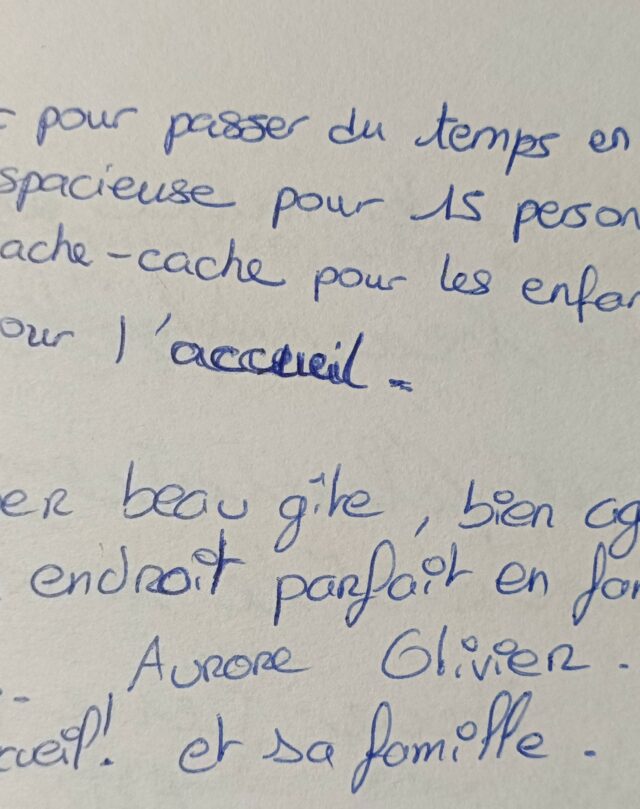 pour passer du temps en
spacieuse pour 15 person
ache-cache pour les enfan
our l'accueil.
er beau gîte, bien ag
endroit parfait en fam
Aurore Olivier.
cueil! et sa famille.